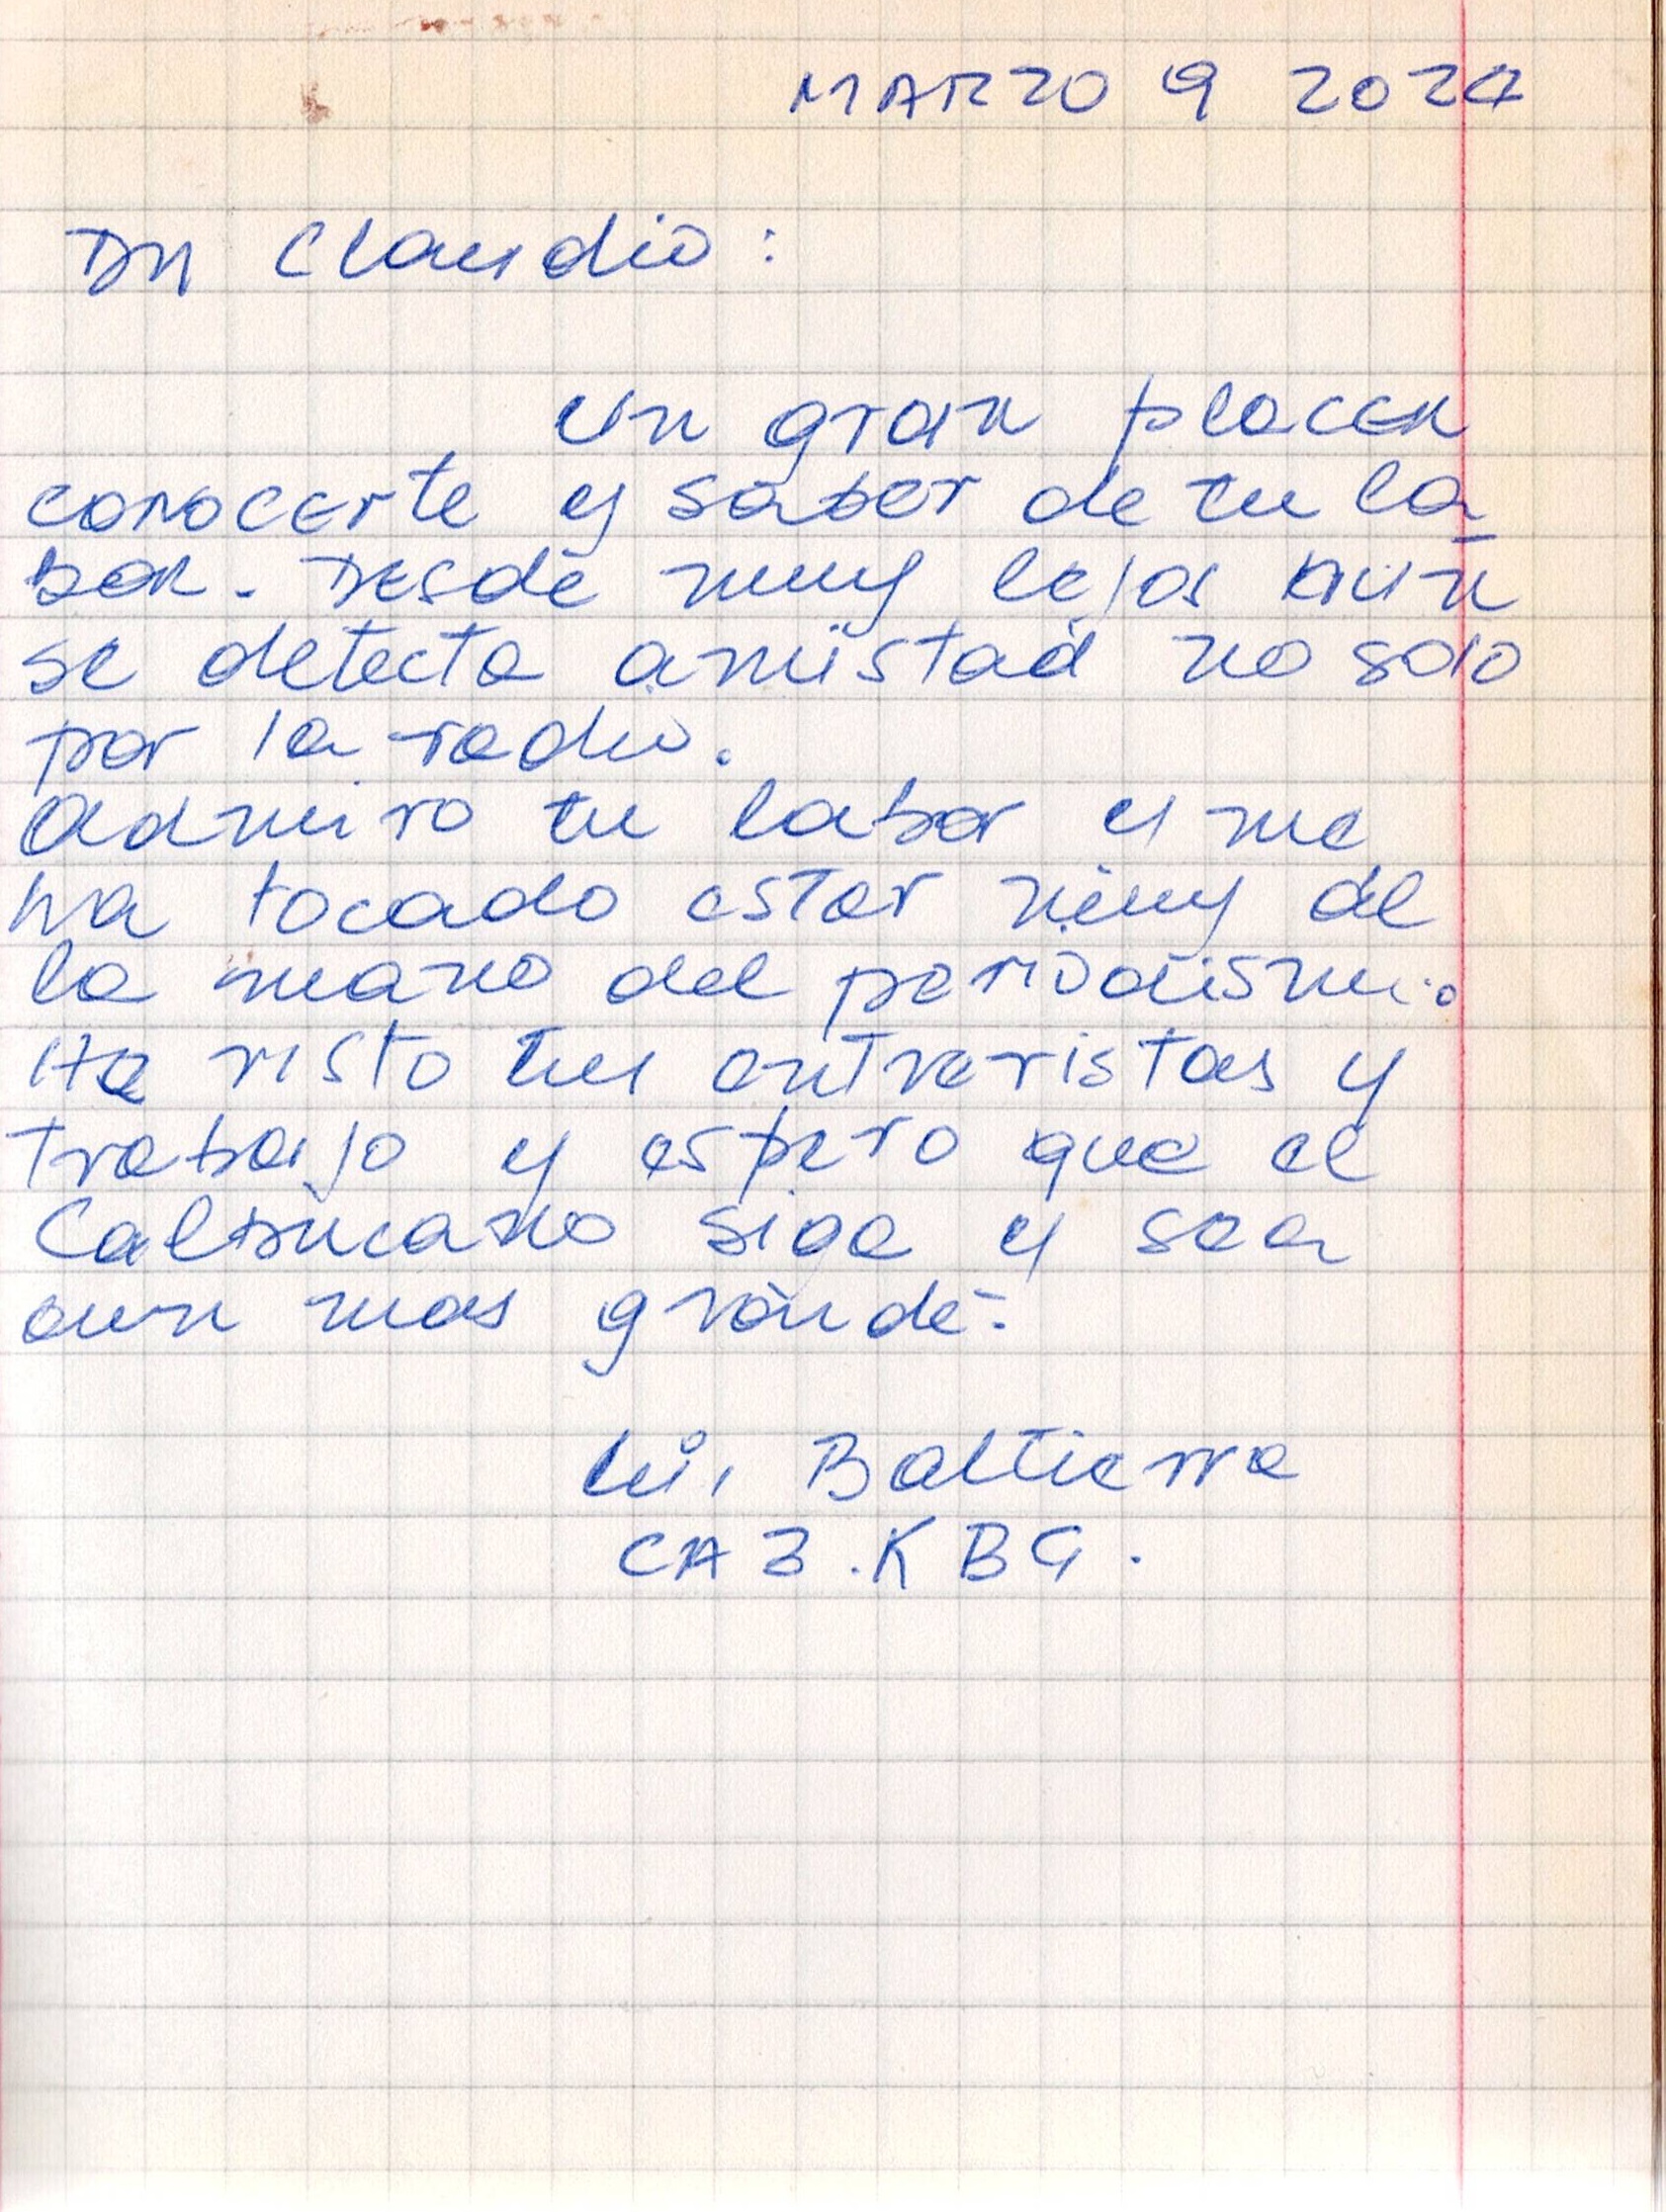 MARZO 9 2024
Dn Claudio:
Un gran placer
conocerte y saber de tu la
bor. Desde muy lejos aun
se detecta amistad no solo
por la radio.
Admiro tu labor y me
ha tocado estar muy de
la mano del periodismo.
He visto tus entrevistas y
trabajo y espero que el
Calbucano siga y sea
aun mas grande.
Baltierra
CA3.KBG.